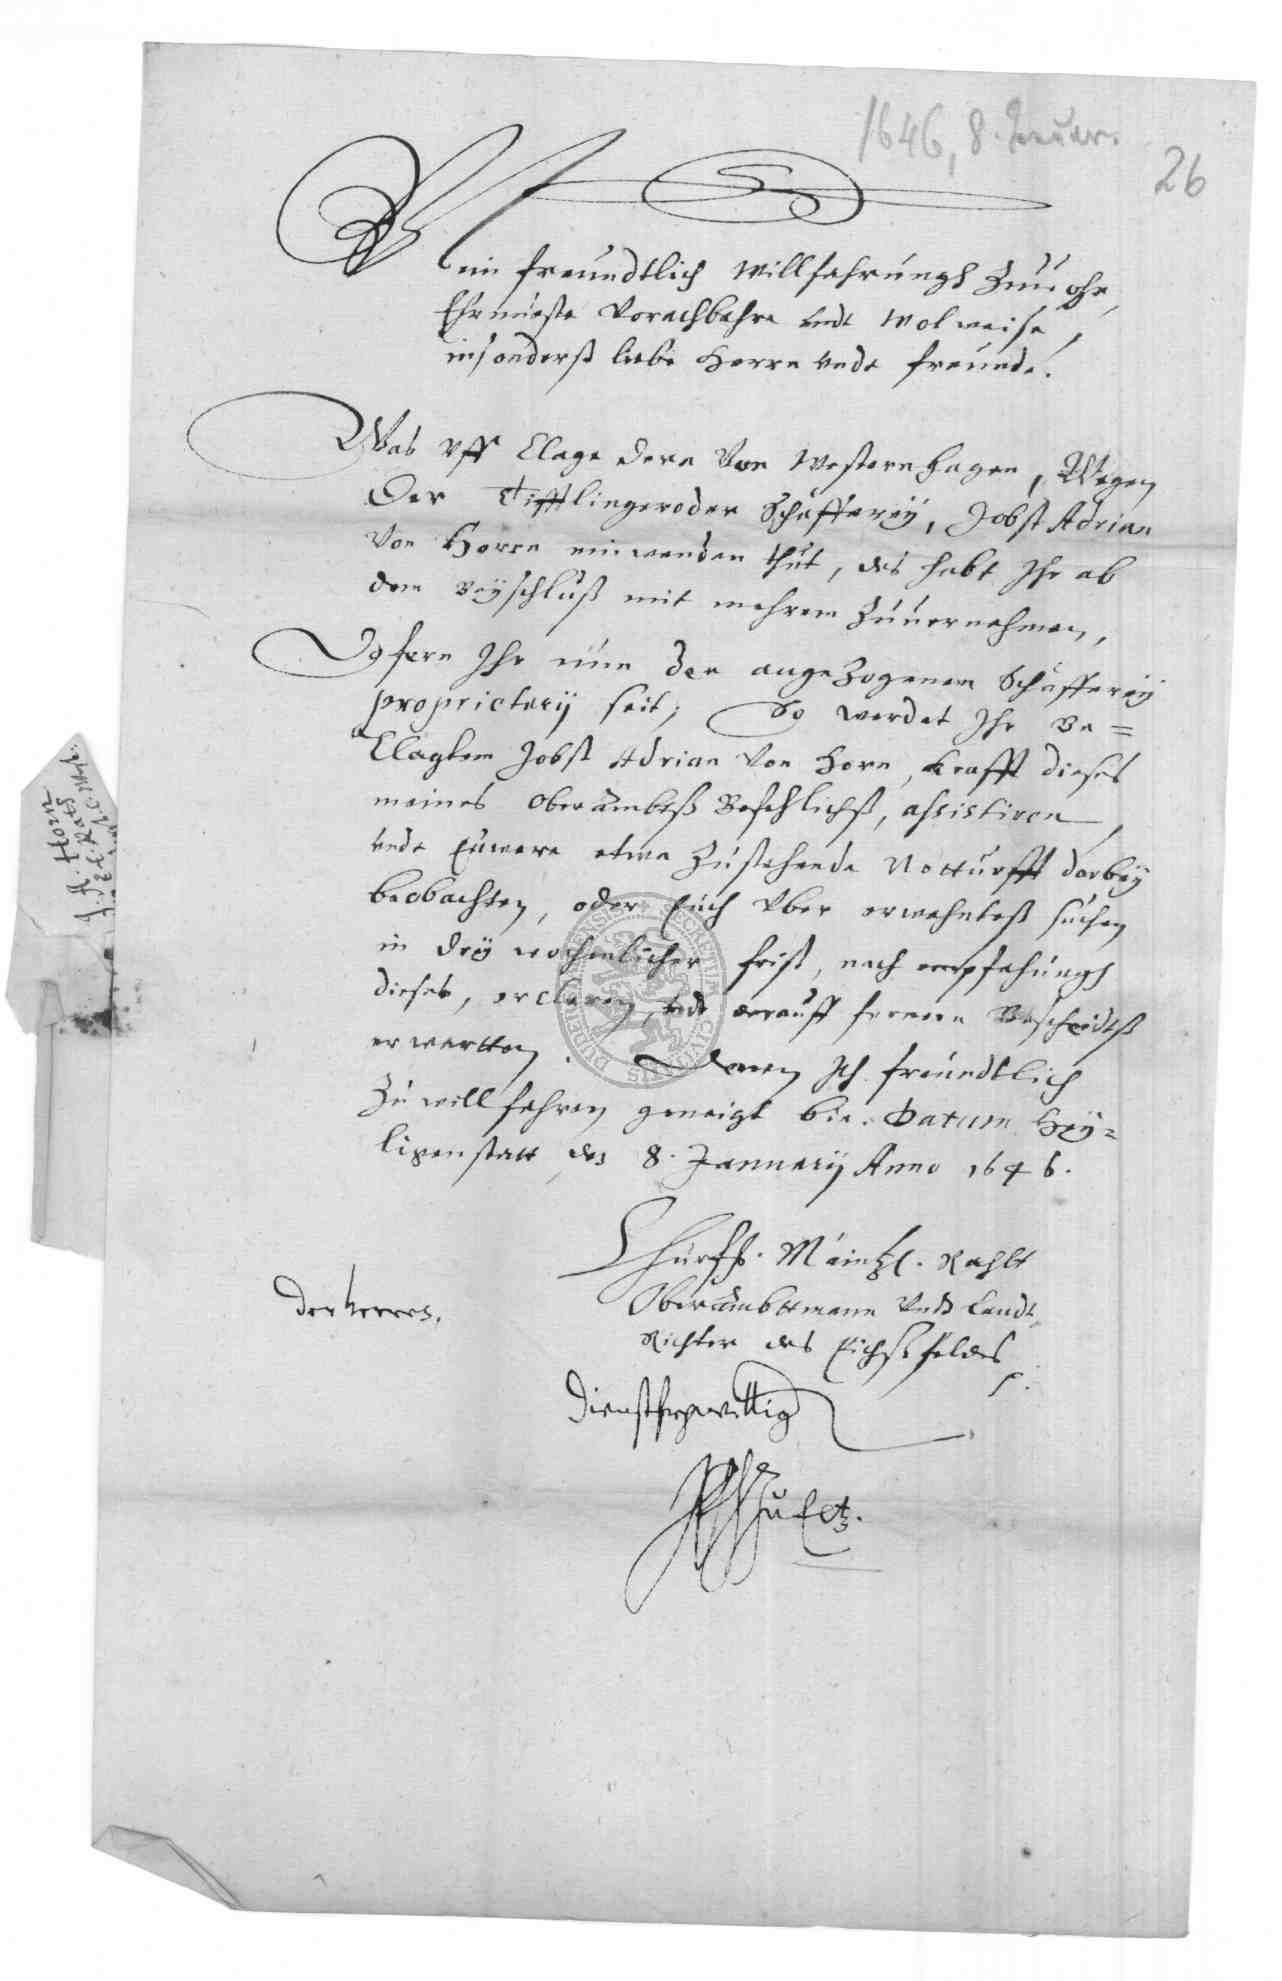 1646, 8. Januar.
26
Mein freundtlich willfahrungh Zuuor
Ehrnueste Vorachtbahre undt Wolweise,
insonderß liebe Herrn unde freunde.
Was uff Clage dern Von Westernhagen, Wegen
Der Tifftlingeroder Schäfferey, Jobst Adrian
Von Horrn einwenden thut, das habt Ihr ab
dem Beyschluß mit mehrem Zuuernehmen,
Dofern Ihr nun der angezogenen Schäfferey
proprietarij seit; So werdet Ihr Be=
Clagtem Jobst Adrian Von Horn, krafft dieses
meines Oberambtß Befehlichß, assistiren,
unde Euwere etwa Zustehende Notturfft darbey
beobachten, oder Euch uber erwehnteß suchen
in drey wochentlicher frist, nach empfahungh
dieses, ercleren, unde darauff fernern Bescheidtß
erwartten. Denen Ich freundtlich
Zu willfahren geneigt bin. Datum Hey=
ligenstatt den 8. Januarij Anno 1646.
Churfß. Mäintzl. Rahtt
Oberambttmann Undt Landt
Richter des Eichßfeldes
Der Herren
Dienstfreywillig
J. A. Horn
SECRETUM CIVITATIS DUDERSTADENSIS